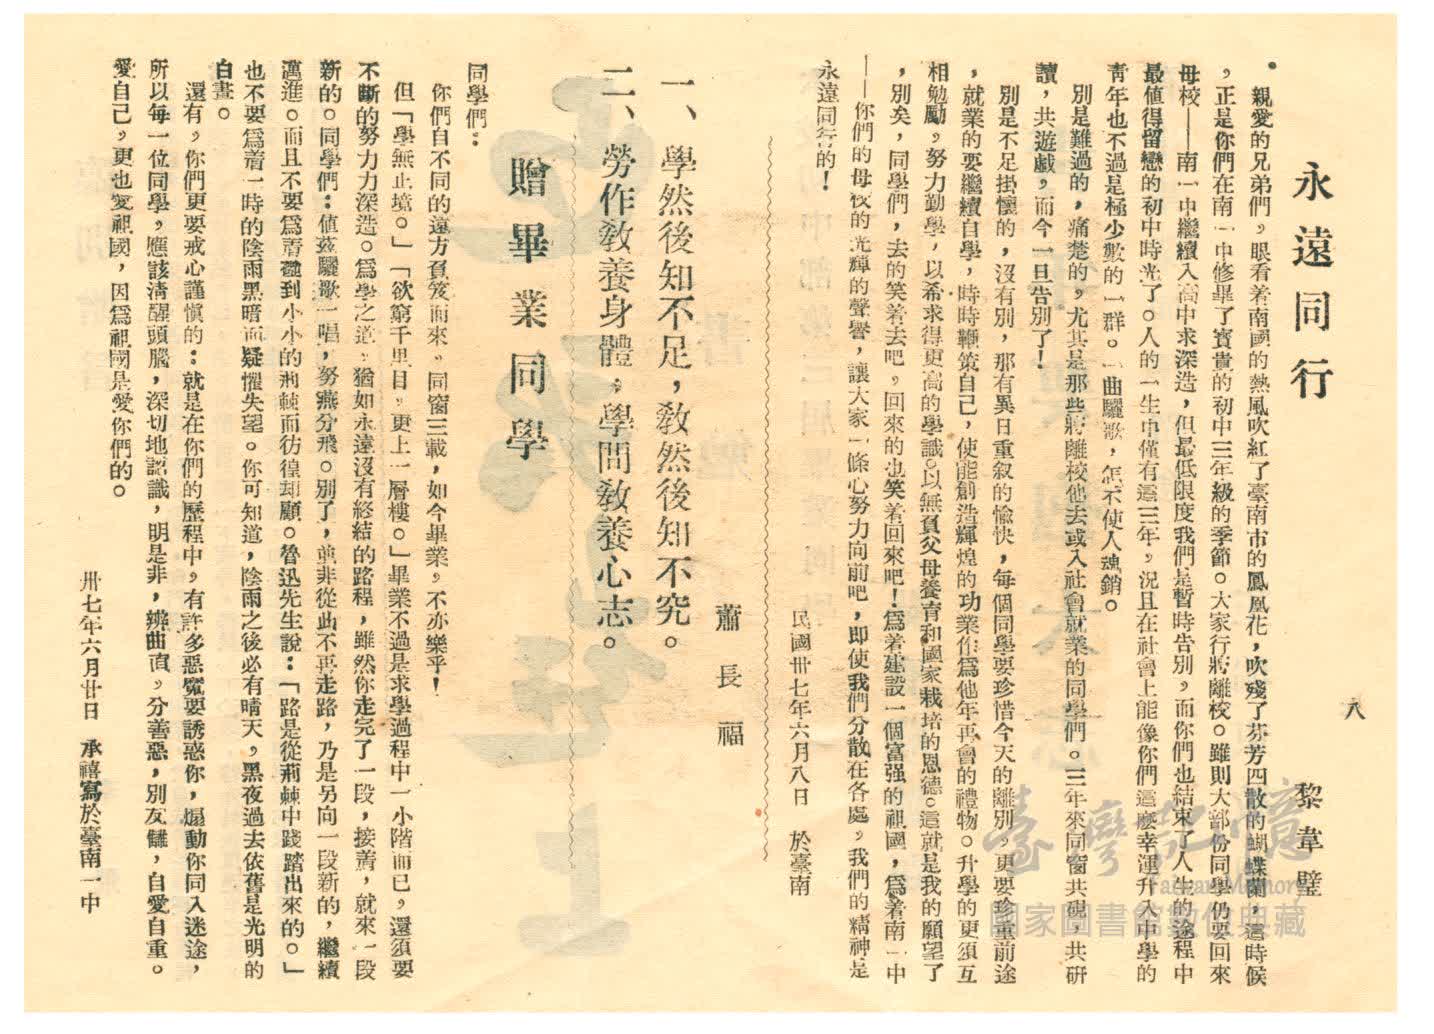 八
永遠同行
黎韋璧
親愛的兄弟們，眼看着南國的熱風吹紅了臺南市的鳳凰花，吹殘了芬芳四散的蝴蝶蘭，這時候
，正是你們在南一中修畢了寶貴的初中三年級的季節。大家行將離校。雖則大部份同學仍要回來
母校——南一中繼續入高中求深造，但最低限度我們是暫時告別，而你們也結束了人生的途程中
最值得留戀的初中時光了。人的一生中僅有這三年，況且在社會上能像你們這麽幸運升入中學的
靑年也不過是極少數的一群。一曲驪歌，怎不使人魂銷。
別是難過的，痛楚的，尤其是那些將離校他去或入社會就業的同學們。三年來同窗共硯，共研
讀，共遊戲，而今一旦告別了！
別是不足掛懷的，沒有別，那有異日重叙的愉快，每個同學要珍惜今天的離別，更要珍重前途
，就業的要繼續自學，時時鞭策自己，使能創造輝煌的功業作爲他年再會的禮物。升學的更須互
相勉勵，努力勤學，以希求得更高的學識。以無負父母養育和國家栽培的恩德。這就是我的願望了
，別矣，同學們，去的笑着去吧，回來的也笑着回來吧！爲着建設一個富强的祖國，爲着南一中
——你們的母校的光輝的聲譽，讓大家一條心努力向前吧，即使我們分散在各處，我們的精神是
永遠同行的！
民國卅七年六月八日　於臺南
蕭長福
一、學然後知不足，敎然後知不究。
二、勞作敎養身體，學問敎養心志。
贈畢業同學
同學們：
你們自不同的遠方負笈而來，同窗三載，如今畢業，不亦樂乎！
但「學無止境。」「欲窮千里目，更上一層樓。」畢業不過是求學過程中一小階而已，還須要
不斷的努力力深造。爲學之道，猶如永遠沒有終結的路程，雖然你走完了一段，接着，就來一段
新的。同學們：值茲驪歌一唱，勞燕分飛。別了，並非從此不再走路，乃是另向一段新的，繼續
邁進。而且不要爲着碰到小小的荊棘而彷徨却顧。魯迅先生說：「路是從荊棘中踐踏出來的。」
也不要爲着一時的陰雨黑暗而疑懼失望。你可知道，陰雨之後必有晴天，黑夜過去依舊是光明的
白晝。
還有，你們更要戒心謹愼的：就是在你們的歷程中，有許多惡魔要誘惑你，煽動你同入迷途，
所以每一位同學，應該淸醒頭腦，深切地認識，明是非，辨曲直，分善惡，別友讎，自愛自重。
愛自己，更也愛祖國，因爲祖國是愛你們的。
卅七年六月廿日　承禧寫於臺南一中
臺灣記憶
Taiwan Memory
國家圖書館數位典藏